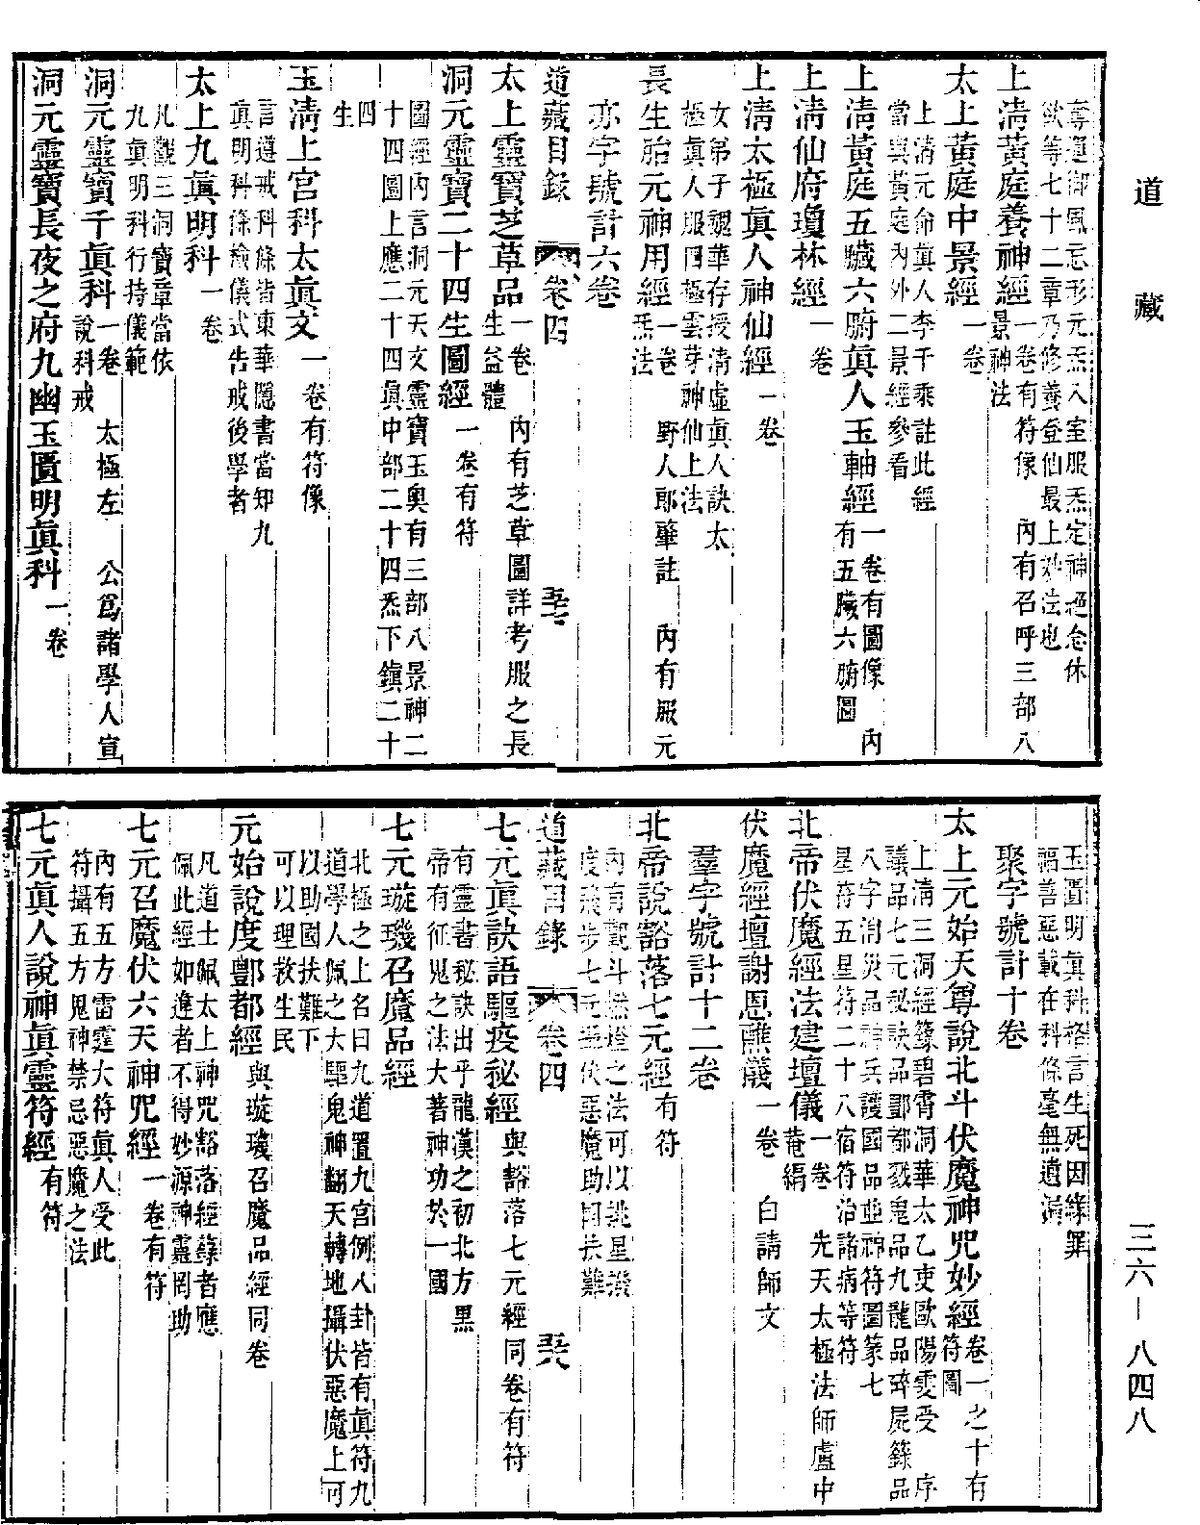 道藏
奪運御風忘形元炁入室服炁定神絕念休
欲等七十二章乃修養登仙最上妙法也
上淸黃庭養神經一卷有符像　內有召呼三部八景神法
太上黃庭中景經一卷
上淸元命眞人李千乘註此經
當與黃庭內外二景經參看
上淸黃庭五臟六腑眞人玉軸經一卷有圖像　內有五臟六腑圖
上淸仙府瓊林經一卷
上淸太極眞人神仙經一卷
女弟子魏華存授淸虛眞人訣太
極眞人服四極雲芽神仙上法
長生胎元神用經一卷　野人郎肇註　內有服元炁法
亦字號計六卷
道藏目錄　卷四　五十七
太上靈寶芝草品一卷　內有芝草圖詳考服之長生益體
洞元靈寶二十四生圖經一卷有符
圖經內言洞元天文靈寶玉奧有三部八景神二
十四圖上應二十四眞中部二十四炁下鎭二十
四
生
玉淸上宮科太眞文一卷有符像
言遵戒科條皆東華隱書當知九
眞明科條檢儀式告戒後學者
太上九眞明科一卷
凡觀三洞寶章當依
九眞明科行持儀範
洞元靈寶千眞科一卷　太極左　公爲諸學人宣說科戒
洞元靈寶長夜之府九幽玉匱明眞科一卷
玉匱明眞科格言生死因緣罪
福善惡載在科條毫無遺漏
聚字號計十卷
太上元始天尊說北斗伏魔神咒妙經卷一之十有符圖
上淸三洞經籙碧霄洞華太乙吏歐陽雯受　序
議品七元秘訣品酆都戮鬼品九龍品碎屍籙品
八字消災品神兵護國品並神符圖篆七
星符五星符二十八宿符治諸病等符
北帝伏魔經法建壇儀一卷　先天太極法師盧中菴緝
伏魔經壇謝恩醮儀一卷　白請師文
羣字號計十二卷
北帝說豁落七元經有符
內有觀斗撚燈之法可以祧星撥
度飛步七元圣伏惡魔助囯扶難
道藏目錄　卷四　五十八
七元眞訣語驅疫秘經與豁落七元經同卷有符
有靈書秘訣出乎龍漢之初北方黑
帝有征鬼之法大著神功於一國
七元璇璣召魔品經
北極之上名曰九道置九宮例人卦皆有眞符九
道學人佩之大驅鬼神翻天轉地攝伏惡魔上可
以助國扶難下
可以理救生民
元始說度酆都經與璇璣召魔品經同卷
凡道士佩太上神咒豁落經籙者應
佩此經如違者不得妙源神靈罔助
七元召魔伏六天神咒經一卷有符
內有五方雷霆大符眞人受此
符攝五方鬼神禁忌惡魔之法
七元眞人說神眞靈符經有符
三六—八四八